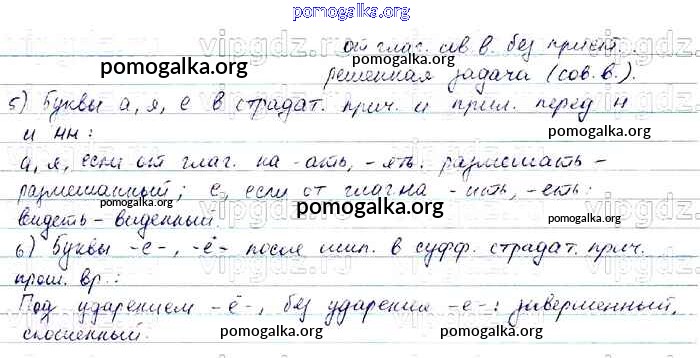 pomogalka.org
от глаг. сов. в. без прист.
pomogalka.org
решенная задача (сов. в.).
pomogalka.org
5) Буквы а, я, е в страдат. прич. и прил. перед н
и нн:
pomogalka.org
а, я, если от глаг. на -ать, -ять: размешать -
размешанный; е, если от глаг. на -ить, -еть:
pomogalka.org
видеть - виденный.
6) Буквы -е-, -ё- после шип. в суфф. страдат. прич.
прош. вр.:
pomogalka.org
Под ударением -ё-, без ударения -е-: завершенный,
pomogalka.org
pomogalka.org